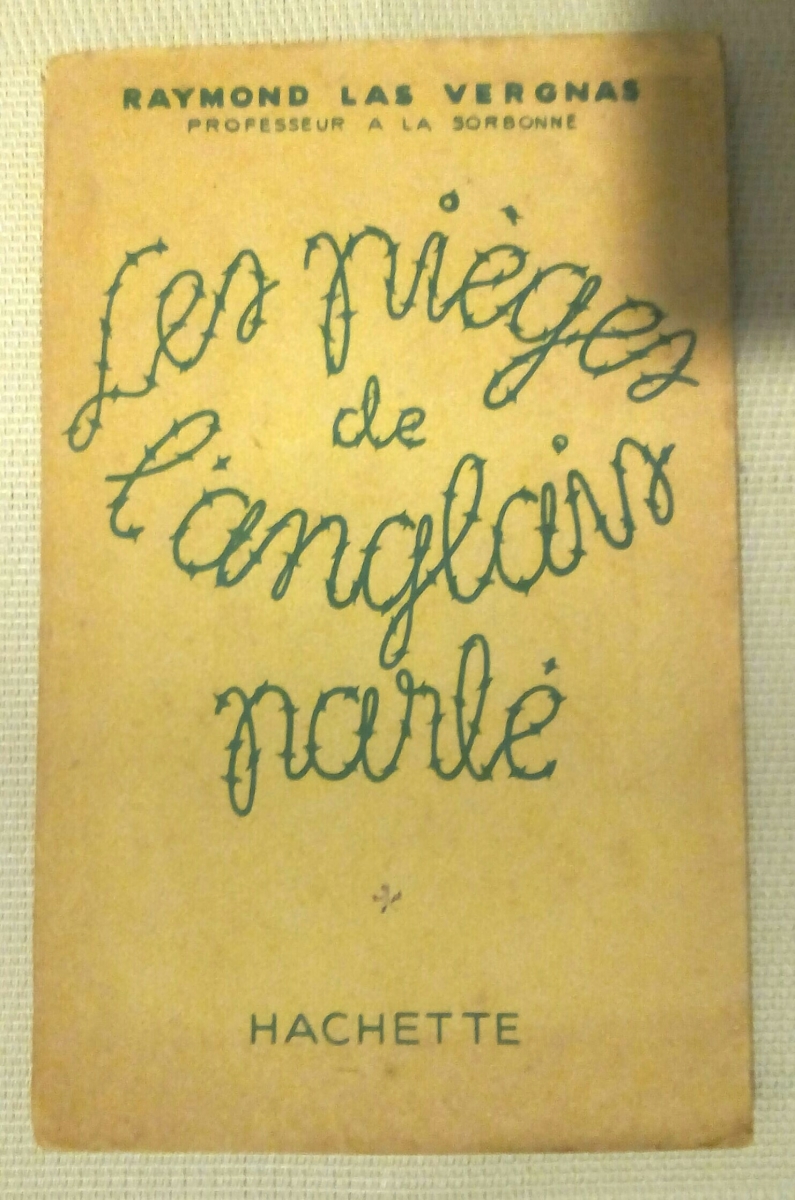 RAYMOND LAS VERGNAS
PROFESSEUR A LA SORBONNE
Les pièges
de
l'anglais
parlé
HACHETTE